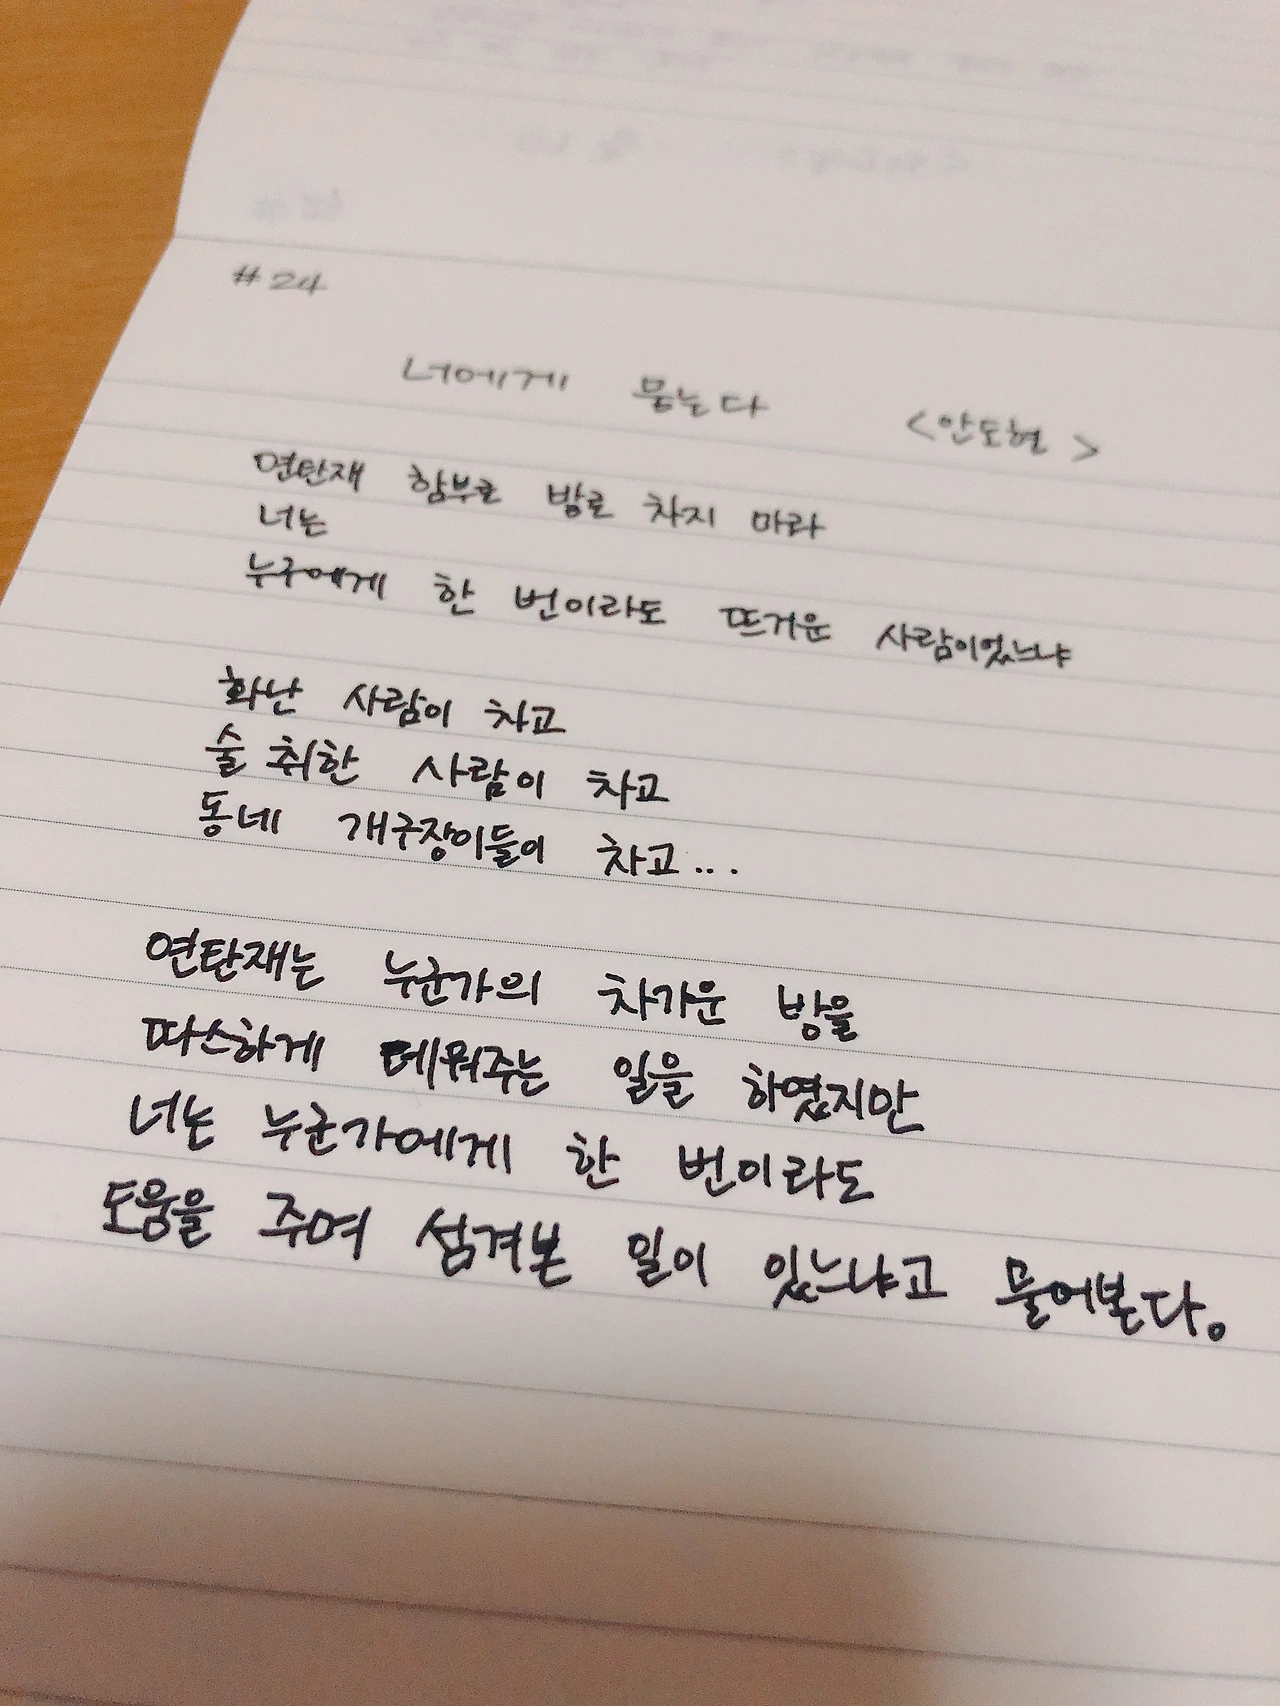 #24
너에게 묻는다 <안도현>
연탄재 함부로 발로 차지 마라
너는
누구에게 한 번이라도 뜨거운 사람이었느냐
화난 사람이 차고
술 취한 사람이 차고
동네 개구장이들이 차고...
연탄재는 누군가의 차가운 방을
따스하게 데워주는 일을 하였지만
너는 누군가에게 한 번이라도
도움을 주며 섬겨본 일이 있느냐고 물어본다.